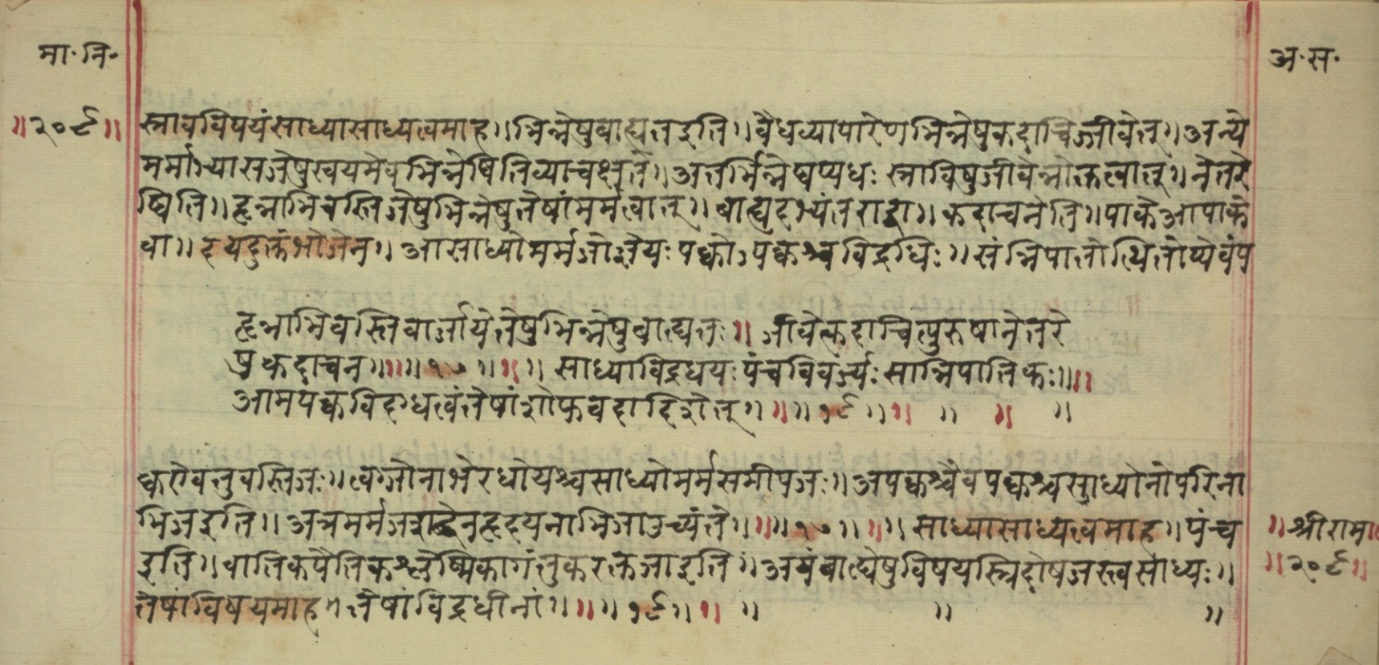 मा॰नि॰
अ॰स॰
॥२०९॥ स्रावविषयंसाध्यासाध्यत्वमाह॥भिन्नेषुबाह्यतइति॥वैधव्यापारेणभिन्नेषुकदाचिज्जीवेत्॥अन्ये
मर्माऽन्यासजेषुस्वयमेवभिन्नेष्वितिव्याचक्षते॥अतर्भिन्नेष्वप्यधःस्राविषुजीवेन्नोक्तत्वात्॥नेतरे
ष्विति॥हृन्नाभिवस्तिजेषुभिन्नेषुतेषांमर्मत्वात्॥बाह्यदभ्यंतराद्वा॥कदाचनेति॥पाकेआपाके
वा॥ भोजेन॥आसाध्योमर्मजोज्ञेयःपक्वोऽपक्वश्चविद्रधिः॥संन्निपातोत्थितोप्येवंप
हृन्नाभिवस्तिवार्जायेतेषुभिन्नेषुबाह्यतः॥जीवेत्कदाचित्पुरुषोनेतरे
षुकदाचन॥॥॥१७॥१॥साध्याविद्रधयःपंचविवर्ज्यःसान्निपातिकः॥॥
आमपक्वविदग्धत्वंतेषांशोफवदादिशेत्॥॥॥१८॥१॥ ॥ ॥ ॥
क्वएवंतुवस्तिजः॥त्वग्जोनाभेरधोयश्चसाध्योमर्मसमीपजः॥अपक्वश्चैवपक्वश्चसाध्योनोपरिना
भिजइति॥अत्रमर्मजशब्देनहृदयनाभिजाउच्यंते॥॥॥१७॥॥॥साध्यासाध्यत्वमाह॥पंच ॥श्रीरामा
इति॥वातिकपैतिकश्लेष्मिकागंतुकरक्तजाइति॥अयंबाह्येषुविषयस्त्रिदोषजस्त्वसाध्यः॥ ॥२०९॥
तेषांविषयमाह॥तेषांविद्रधीनां॥॥॥१८॥१॥ ॥ ॥ ॥